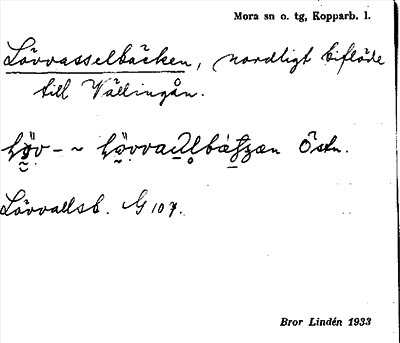 Mora sn o. tg, Kopparb. l.
Lövvasselbäcken, nordligt biflöde
till Vällingån.
Östn.
Lövvallsb. G 107.
Bror Lindén 1933